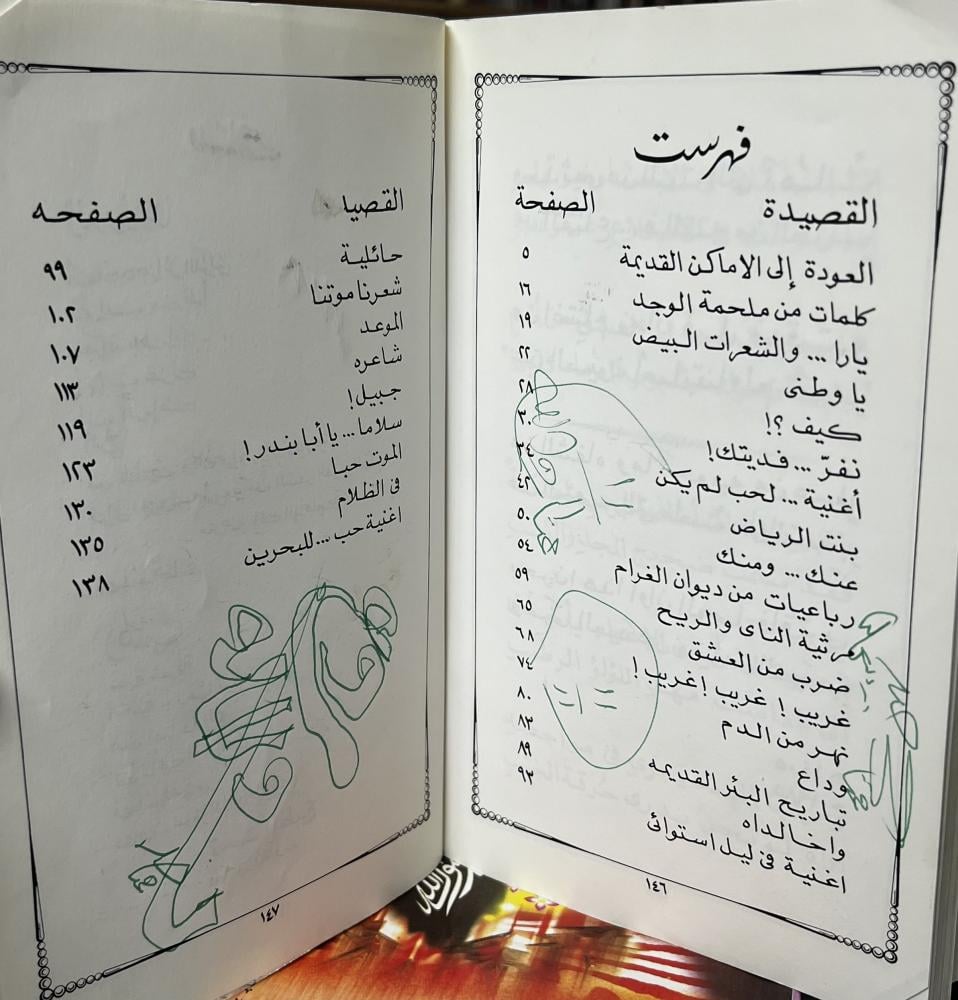 فهرست
القصيدة الصفحة
العودة إلى الاماكن القديمة ٥
كلمات من ملحمة الوجد ١٦
يارا ... والشعرات البيض ١٩
يا وطنى ٢٢
كيف ؟! ٢٨
نفرّ ... فديتك! ٣٠
أغنية ... لحب لم يكن ٣٤
بنت الرياض ٤٢
عنك ... ومنك ٥٠
رباعيات من ديوان الغرام ٥٤
مرثية الناى والريح ٥٩
ضرب من العشق ٦٥
غريب ! غريب ! غريب ! ٦٨
نهر من الدم ٧٤
وداع ٨٠
تباريح البئر القديمه ٨٣
واخالداه ٨٩
اغنية فى ليل استوائى ٩٣
١٤٦
القصيد الصفحه
حائلية ٩٩
شعرنا موتنا ١٠٢
الموعد ١٠٧
شاعره ١١٣
جبيل! ١١٩
سلاما ... يا أبا بندر! ١٢٣
الموت حبا ١٣٠
فى الظلام ١٣٥
اغنية حب ... للبحرين ١٣٨
١٤٧